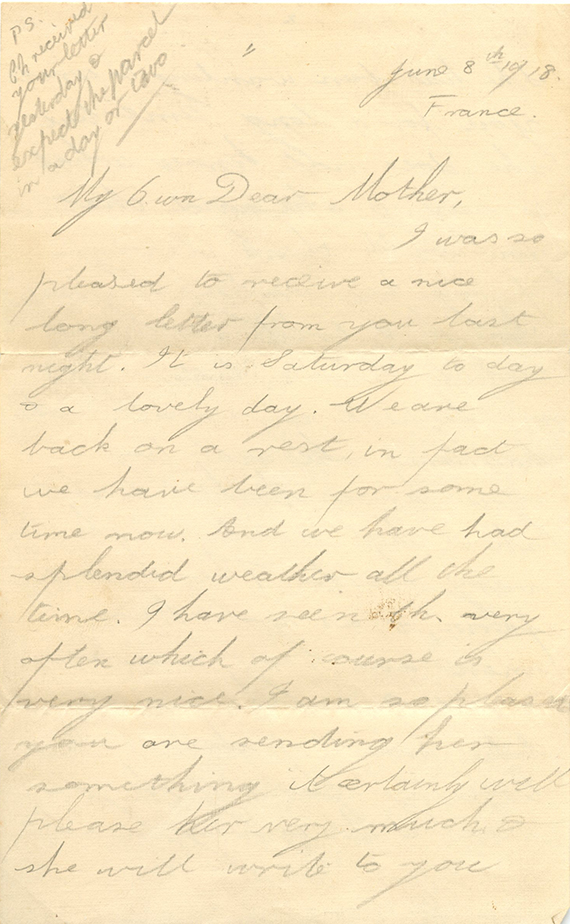 P.S.
Ch received
your letter
yesterday &
expects the parcel
in a day or two
June 8th 1918.
France.
My Own Dear Mother,
I was so
pleased to receive a nice
long letter from you last
night. It is Saturday to day
& a lovely day. We are
back on a rest, in fact
we have been for some
time now. And we have had
splendid weather all the
time. I have seen Ch. very
often which of course is
very nice. I am so pleased
you are sending her
something it certainly will
please her very much &
she will write to you